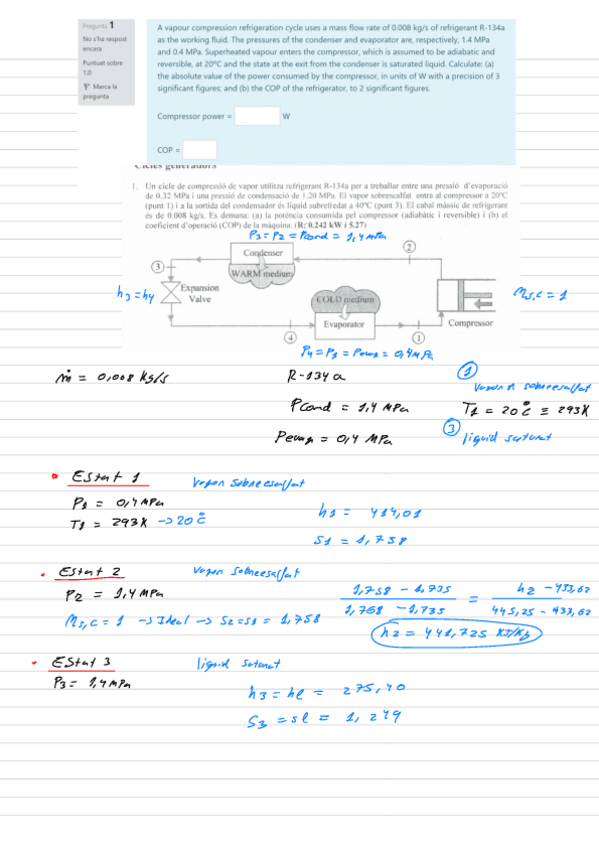 Pregunta 1
No s'ha respost
encara
Puntuat sobre
1,0
Marca la
pregunta
A vapour compression refrigeration cycle uses a mass flow rate of 0.008 kg/s of refrigerant R-134a
as the working fluid. The pressures of the condenser and evaporator are, respectively, 1.4 MPa
and 0.4 MPa. Superheated vapour enters the compressor, which is assumed to be adiabatic and
reversible, at 20ºC and the state at the exit from the condenser is saturated liquid. Calculate: (a)
the absolute value of the power consumed by the compressor, in units of W with a precision of 3
significant figures; and (b) the COP of the refrigerator, to 2 significant figures.
Compressor power = W
COP =
Cicles generadors
1. Un cicle de compressió de vapor utilitza refrigerant R-134a per a treballar entre una pressió d'evaporació
de 0.32 MPa i una pressió de condensació de 1.20 MPa. El vapor sobrescalfat entra al compressor a 20ºC
(punt 1) i a la sortida del condensador és líquid subrefredat a 40ºC (punt 3). El cabal màssic de refrigerant
és de 0.008 kg/s. Es demana: (a) la potència consumida pel compressor (adiabàtic i reversible) i (b) el
coeficient d'operació (COP) de la màquina. (R: 0.242 kW i 5.27)
P3 = P2 = Pcond = 1,4 MPa
2
Condenser
3
WARM medium
h3 = h4
Expansion
Valve
COLD medium
Ms,c = 1
Evaporator
Compressor
4
1
P4 = P1 = Pevap = 0,4 MPa
ṁ = 0,008 kg/s
R-134a
1
vapor sobreescalfat
Pcond = 1,4 MPa
T1 = 20ºC ≡ 293K
3
Pevap = 0,4 MPa
liquid saturat
Estat 1
vapor sobreescalfat
P1 = 0,4 MPa
T1 = 293K -> 20ºC
h1 = 414,01
S1 = 1,758
Estat 2
vapor sobreescalfat
P2 = 1,4 MPa
Ms,c = 1 -> Ideal -> S2=S1 = 1,758
1,758 - 1,735 / 1,768 - 1,735 = h2 - 433,62 / 445,25 - 433,62
h2 = 441,725 KJ/Kg
Estat 3
liquid saturat
P3 = 1,4 MPa
h3 = hl = 275,40
S3 = sl = 1,249